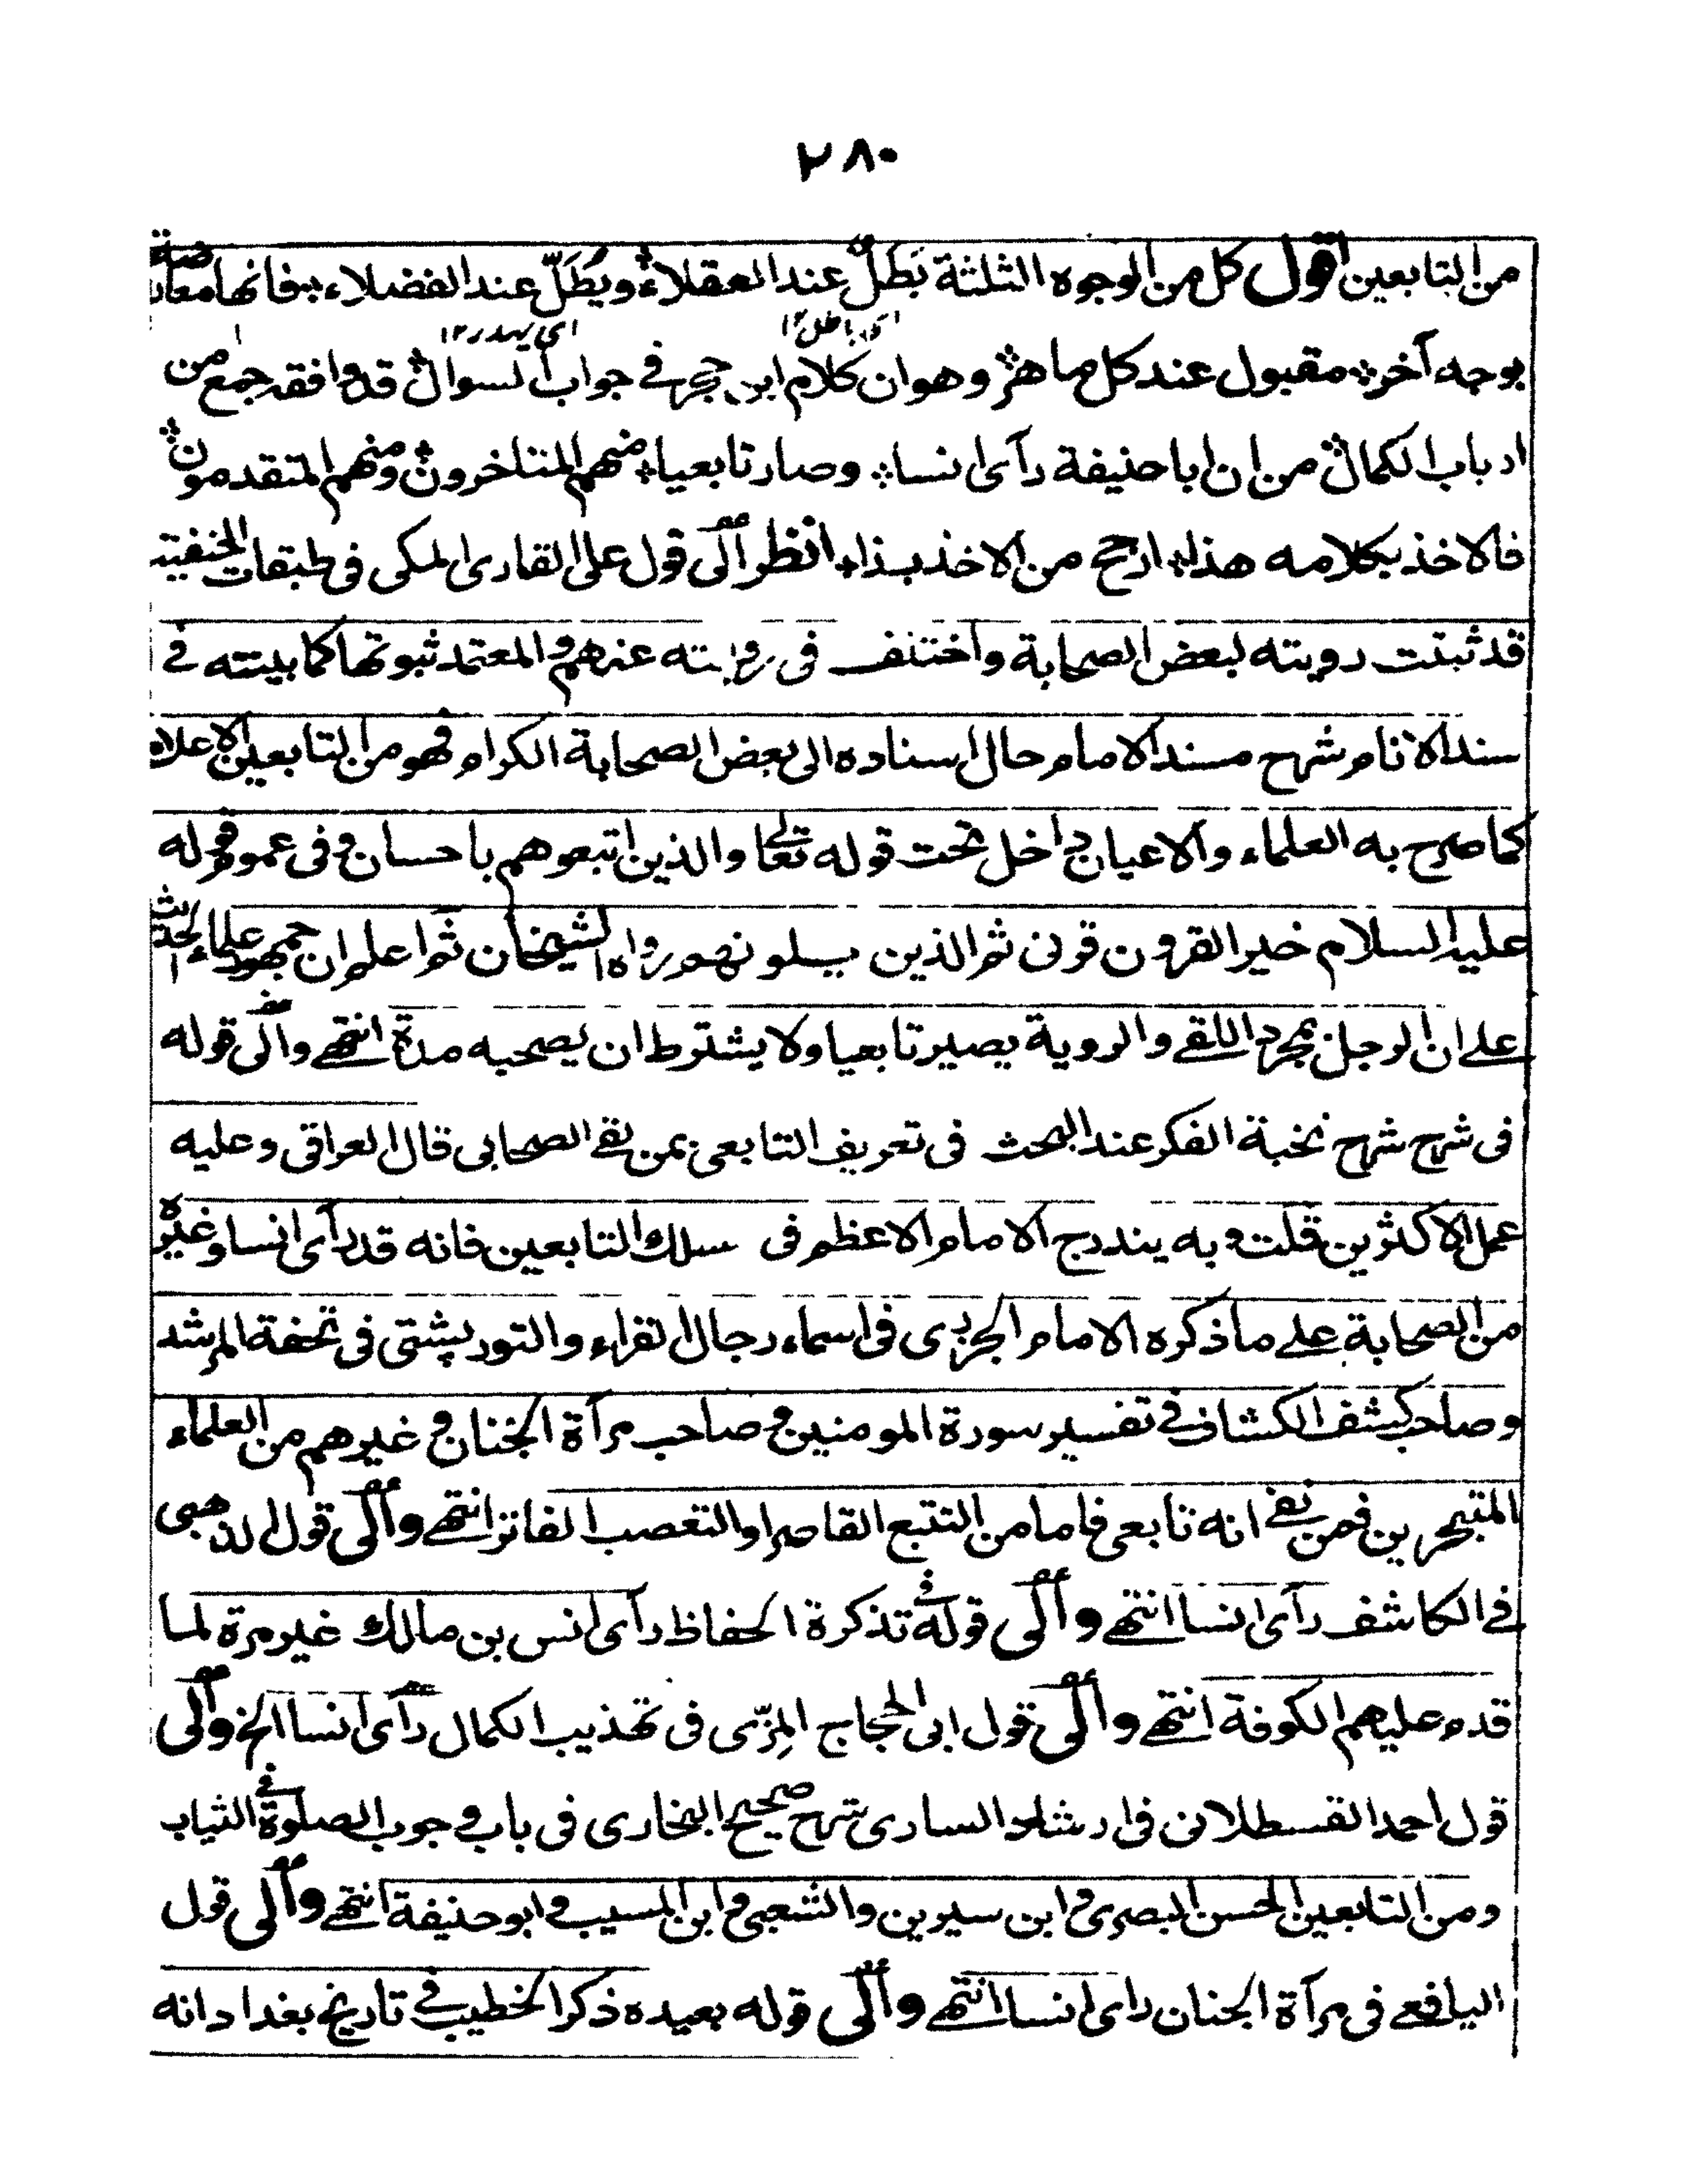 ٢٨٠
من التابعين اقول كل من الوجوه الثلثة بَطَلٌ عند العقلاء ويُطَلّ عند الفضلاء فانها معارضة
اى باطل ١٢ اى يهدر ١٢
بوجه آخر مقبول عند كل ماهر وهو ان كلام ابن حجر فى جواب السوال قد وافقه جمع من
ارباب الكمال من ان ابا حنيفة رآى انسا وصار تابعيا منهم المتاخرون ومنهم المتقدمون
فالاخذ بكلامه هذا ارجح من الاخذ بذا انظر الى قول على القارى المكى فى طبقات الحنفية
قد ثبتت رويته لبعض الصحابة واختلف فى روايته عنهم والمعتمد ثبوتها كما بينته فى
سند الانام شرح مسند الامام حال اسناده الى بعض الصحابة الكرام فهو من التابعين الاعلام
كما صرح به العلماء والاعيان داخل تحت قوله تعالى والذين اتبعوهم باحسان وفى عموم قوله
عليه السلام خير القرون قرنى ثم الذين يلونهم رواه الشيخان ثم اعلم ان جمهور علماء الحديث
على ان الرجل بمجرد اللقى والروية يصير تابعيا ولا يشترط ان يصحبه مدة انتهى والى قوله
فى شرح شرح نخبة الفكر عند البحث فى تعريف التابعى بمن لقى الصحابى قال العراقى وعليه
عمل الاكثرين قلت وبه يندرج الامام الاعظم فى سلك التابعين فانه قد رآى انسا وغيره
من الصحابة على ما ذكره الامام الجزرى فى اسماء رجال القراء والتوربشتى فى تحفة المرشد
وصاحب كشف الكشاف فى تفسير سورة المومنين وصاحب مرآة الجنان وغيرهم من العلماء
المتبحرين فمن نفى انه تابعى فاما من التتبع القاصر او التعصب الفاتر انتهى والى قول الذهبى
فى الكاشف رآى انسا انتهى والى قوله فى تذكرة الحفاظ رآى انس بن مالك غير مرة لما
قدم عليهم الكوفة انتهى والى قول ابى الحجاج المِزّى فى تهذيب الكمال رآى انسا الخ والى
قول احمد القسطلانى فى ارشاد السارى شرح صحيح البخارى فى باب وجوب الصلوة فى الثياب
ومن التابعين الحسن البصرى وابن سيرين والشعبى وابن المسيب وابو حنيفة انتهى والى قول
اليافعى فى مرآة الجنان راى انسا انتهى والى قوله بعيده ذكر الخطيب فى تاريخ بغداد انه